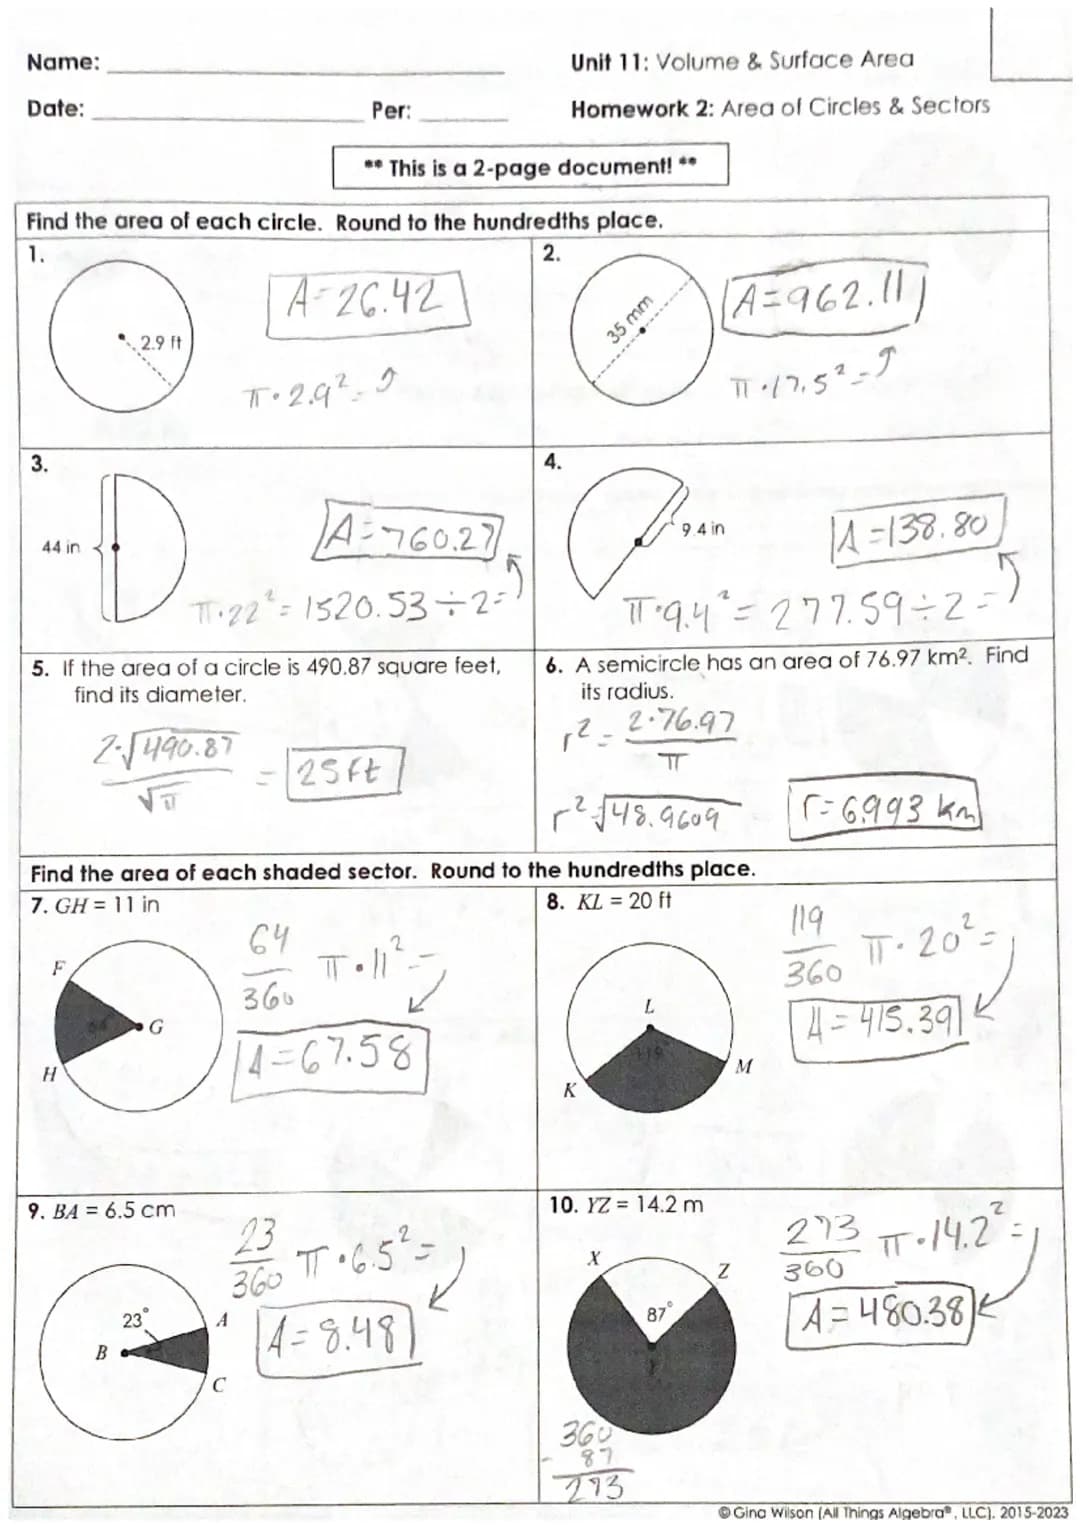 Name:
Unit 11: Volume & Surface Area
Date:
Per:
Homework 2: Area of Circles & Sectors
** This is a 2-page document! **
Find the area of each circle. Round to the hundredths place.
1.
2.9 ft
A=26.42
π·2.9²=
2.
35 mm
A=962.11
π·17.5²=
3.
44 in
A=760.27
π·22²=1520.53÷2=
4.
9.4 in
A=138.80
π·9.4²=277.59÷2=
5. If the area of a circle is 490.87 square feet,
find its diameter.
2·√490.87
√π
= 25ft
6. A semicircle has an area of 76.97 km². Find
its radius.
r²= 2·76.97
π
r²√48.9609
r=6.993 km
Find the area of each shaded sector. Round to the hundredths place.
7. GH = 11 in
F
G
H
64
360
π·11²=
A=67.58
8. KL = 20 ft
L
119°
M
K
119
360
π·20²=
A=415.39
9. BA = 6.5 cm
23°
A
B
C
23
360
π·6.5²=
A=8.48
10. YZ = 14.2 m
X
Z
87°
Y
273
360
π·14.2²=
A=480.38
360
- 87
273
© Gina Wilson (All Things Algebra®, LLC), 2015-2023